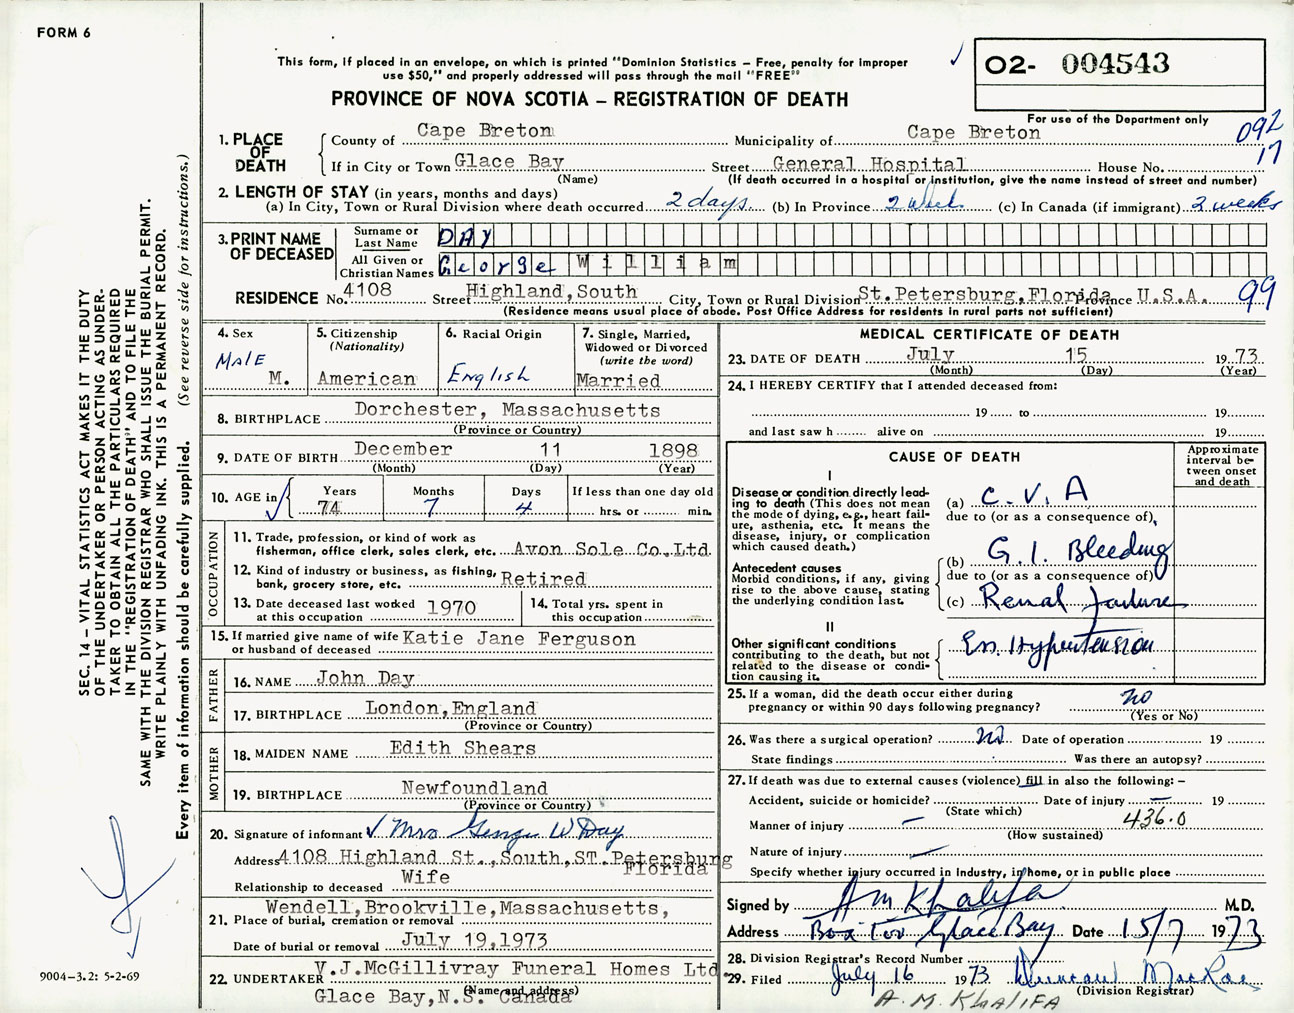 FORM 6
This form, if placed in an envelope, on which is printed "Dominion Statistics – Free, penalty for improper
use $50," and properly addressed will pass through the mail "FREE"
PROVINCE OF NOVA SCOTIA – REGISTRATION OF DEATH
02- 004543
For use of the Department only
092
17
1. PLACE OF DEATH
County of Cape Breton Municipality of Cape Breton
If in City or Town Glace Bay Street General Hospital House No.
(Name) (If death occurred in a hospital or institution, give the name instead of street and number)
2. LENGTH OF STAY (in years, months and days)
(a) In City, Town or Rural Division where death occurred 2 days. (b) In Province 2 week (c) In Canada (if immigrant) 2 weeks
3. PRINT NAME OF DECEASED
Surname or Last Name DAY
All Given or Christian Names George William
RESIDENCE No. 4108 Street Highland,South City, Town or Rural Division St.Petersburg,Florida Province U.S.A. 99
(Residence means usual place of abode. Post Office Address for residents in rural parts not sufficient)
4. Sex
MALE
M.
5. Citizenship
(Nationality)
American
6. Racial Origin
English
7. Single, Married,
Widowed or Divorced
(write the word)
Married
8. BIRTHPLACE Dorchester, Massachusetts
(Province or Country)
9. DATE OF BIRTH December 11 1898
(Month) (Day) (Year)
10. AGE in
Years 74
Months 7
Days 4
If less than one day old
hrs. or min.
OCCUPATION
11. Trade, profession, or kind of work as
fisherman, office clerk, sales clerk, etc. Avon Sole Co.Ltd.
12. Kind of industry or business, as fishing,
bank, grocery store, etc. Retired
13. Date deceased last worked
at this occupation 1970
14. Total yrs. spent in
this occupation
15. If married give name of wife
or husband of deceased Katie Jane Ferguson
FATHER
16. NAME John Day
17. BIRTHPLACE London,England
(Province or Country)
MOTHER
18. MAIDEN NAME Edith Shears
19. BIRTHPLACE Newfoundland
(Province or Country)
20. Signature of informant Mrs George W Day
Address 4108 Highland St.,South,ST.Petersburg
Florida
Relationship to deceased Wife
Wendell,Brookville,Massachusetts,
21. Place of burial, cremation or removal
Date of burial or removal July 19,1973
22. UNDERTAKER V.J.McGillivray Funeral Homes Ltd.
(Name and address)
Glace Bay,N.S. Canada
MEDICAL CERTIFICATE OF DEATH
23. DATE OF DEATH July 15 1973
(Month) (Day) (Year)
24. I HEREBY CERTIFY that I attended deceased from:
19 to 19
and last saw h alive on 19
CAUSE OF DEATH
Approximate
interval be-
tween onset
and death
I
Disease or condition directly lead-
ing to death (This does not mean
the mode of dying, e.g., heart fail-
ure, asthenia, etc. It means the
disease, injury, or complication
which caused death.)
(a) C.V.A
due to (or as a consequence of),
Antecedent causes
Morbid conditions, if any, giving
rise to the above cause, stating
the underlying condition last.
(b) G.I. Bleeding
due to (or as a consequence of)
(c) Renal failure
II
Other significant conditions
contributing to the death, but not
related to the disease or condi-
tion causing it.
Ess. Hypertension
25. If a woman, did the death occur either during
pregnancy or within 90 days following pregnancy? no
(Yes or No)
26. Was there a surgical operation? no Date of operation 19
State findings Was there an autopsy?
27. If death was due to external causes (violence) fill in also the following: –
Accident, suicide or homicide? Date of injury — 19
(State which)
Manner of injury — 436.0
(How sustained)
Nature of injury —
Specify whether injury occurred in Industry, in home, or in public place
Signed by A M Khalifa M.D.
Address Box Glace Bay Date 15/7 1973
28. Division Registrar's Record Number
29. Filed July 16 1973 Duncan MacRae
(Division Registrar)
A. M. KHALIFA
SEC. 14 – VITAL STATISTICS ACT MAKES IT THE DUTY
OF THE UNDERTAKER OR PERSON ACTING AS UNDER-
TAKER TO OBTAIN ALL THE PARTICULARS REQUIRED
IN THE "REGISTRATION OF DEATH" AND TO FILE THE
SAME WITH THE DIVISION REGISTRAR WHO SHALL ISSUE THE BURIAL PERMIT.
WRITE PLAINLY WITH UNFADING INK. THIS IS A PERMANENT RECORD.
Every item of information should be carefully supplied. (See reverse side for instructions.)
9004-3.2: 5-2-69